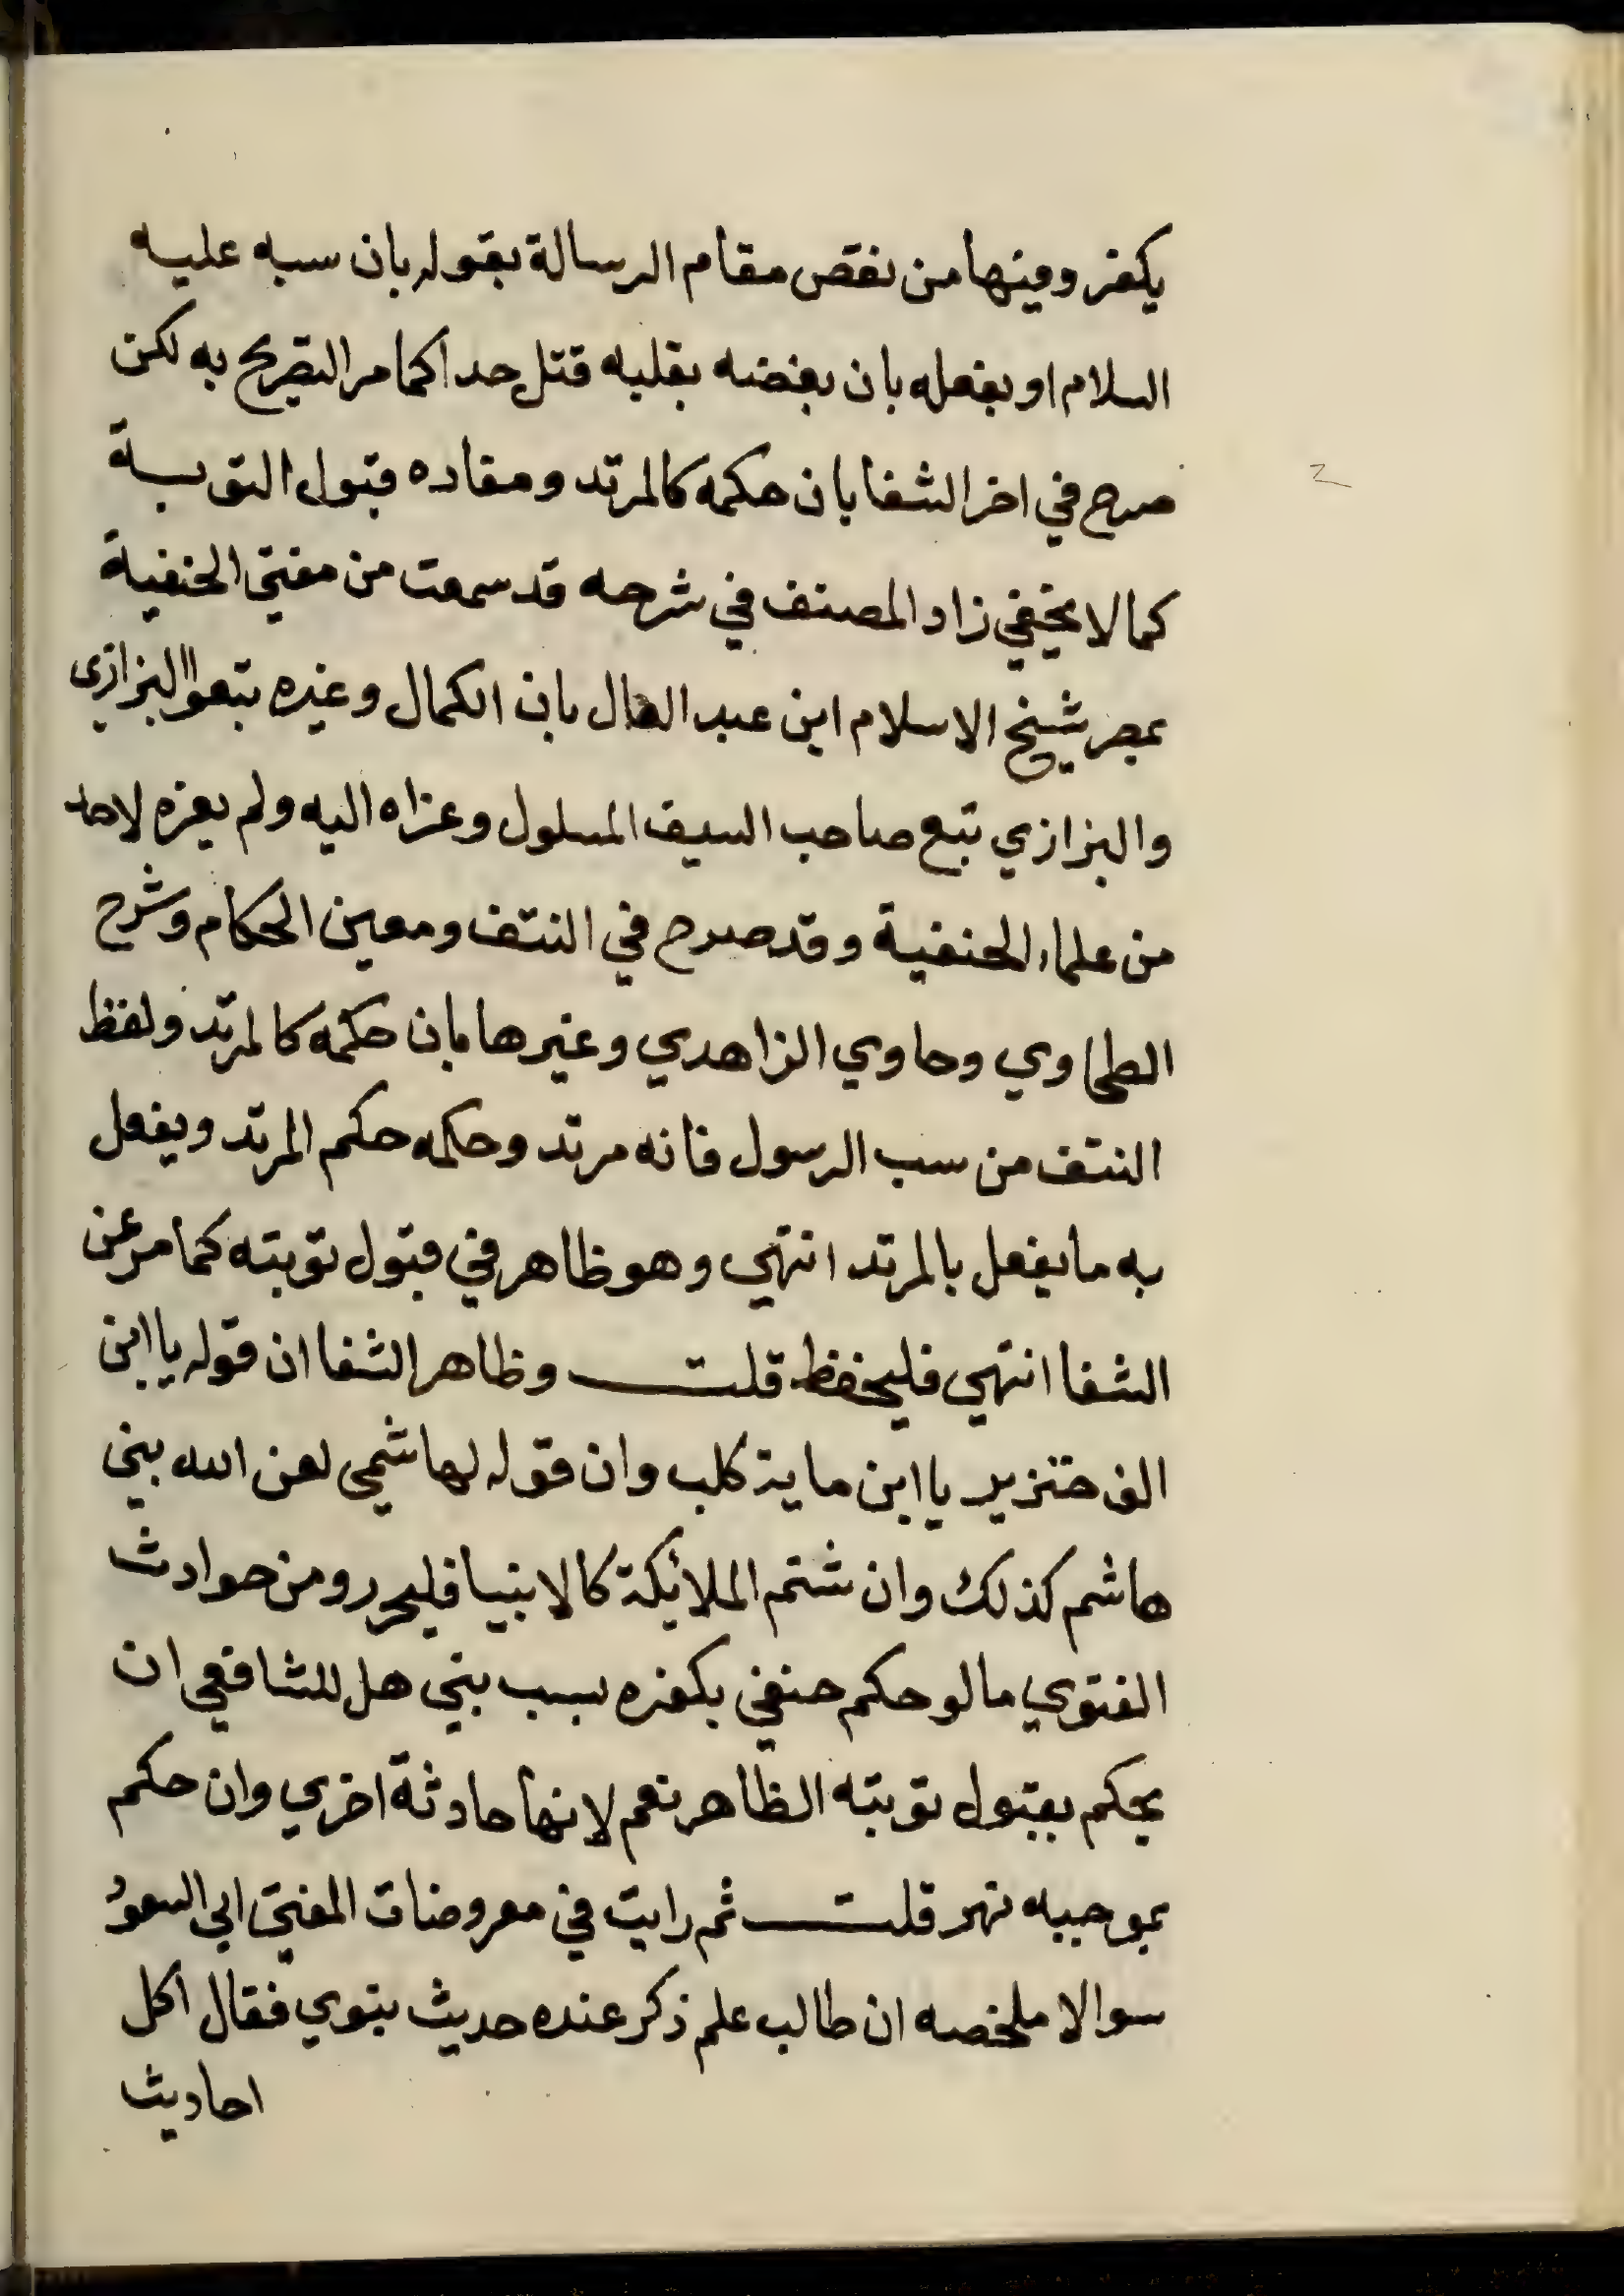 يكفر وفيها من نقص مقام الرسالة بقوله بان سبه عليه
السلام او بفعله بان بغضه بقلبه قتل حدا كما مر التصريح به لكن
صرح في اخر الشفا بان حكمه كالمرتد ومفاده قبول التوبة
كما لا يخفي زاد المصنف في شرحه قد سمعت من مفتي الحنفية
بمصر شيخ الاسلام ابن عبد العال بان الكمال وغيره تبعوا البزازي
والبزازي تبع صاحب السيف المسلول وعزاه اليه ولم يعزه لاحد
من علماء الحنفية وقد صرح في النتف ومعين الحكام وشرح
الطحاوي وحاوي الزاهدي وغيرها بان حكمه كالمرتد ولفظ
النتف من سب الرسول فانه مرتد وحكمه حكم المرتد ويفعل
به ما يفعل بالمرتد انتهي وهو ظاهر في قبول توبته كما مر عن
الشفا انتهي فليحفظ قلت وظاهر الشفا ان قوله يا ابن
الف خنزير يا ابن ماية كلب وان قوله لهاشمي لعن الله بني
هاشم كذلك وان شتم الملائكة كالانبيا فليحرر ومن حوادث
الفتوي ما لو حكم حنفي بكفره بسبب نبي هل للشافعي ان
يحكم بقبول توبته الظاهر نعم لانها حادثة اخري وان حكم
بموجبه نهر قلت ثم رايت في معروضات المفتي ابي السعود
سوالا ملخصه ان طالب علم ذكر عنده حديث نبوي فقال اكل
احاديث